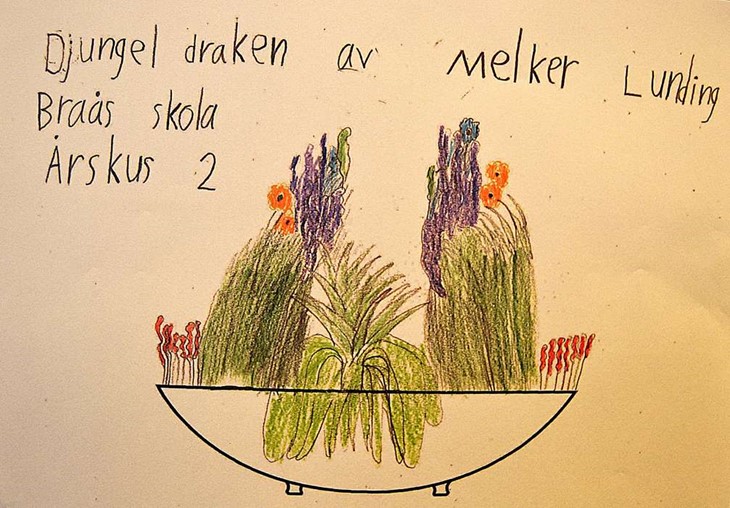 Djungel draken av Melker Lunding
Braås skola
Årskus 2